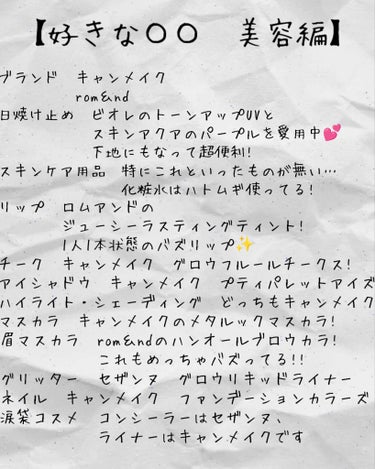 【好きな○○　美容編】
ブランド　キャンメイク
rom&nd
日焼け止め　ビオレのトーンアップUVと
スキンアクアのパープルを愛用中💕
下地にもなって超便利!
スキンケア用品　特にこれといったものが無い…
化粧水はハトムギ使ってる!
リップ　ロムアンドの
ジューシーラスティングティント!
1人1本状態のバズリップ✨
チーク　キャンメイク　グロウフルールチークス!
アイシャドウ　キャンメイク　プティパレットアイズ
ハイライト・シェーディング　どっちもキャンメイク
マスカラ　キャンメイクのメタルックマスカラ!
眉マスカラ　rom&ndのハンオールブロウカラ!
これもめっちゃバズってる!!
グリッター　セザンヌ　グロウリキッドライナー
ネイル　キャンメイク　ファンデーションカラーズ
涙袋コスメ　コンシーラーはセザンヌ、
ライナーはキャンメイクです